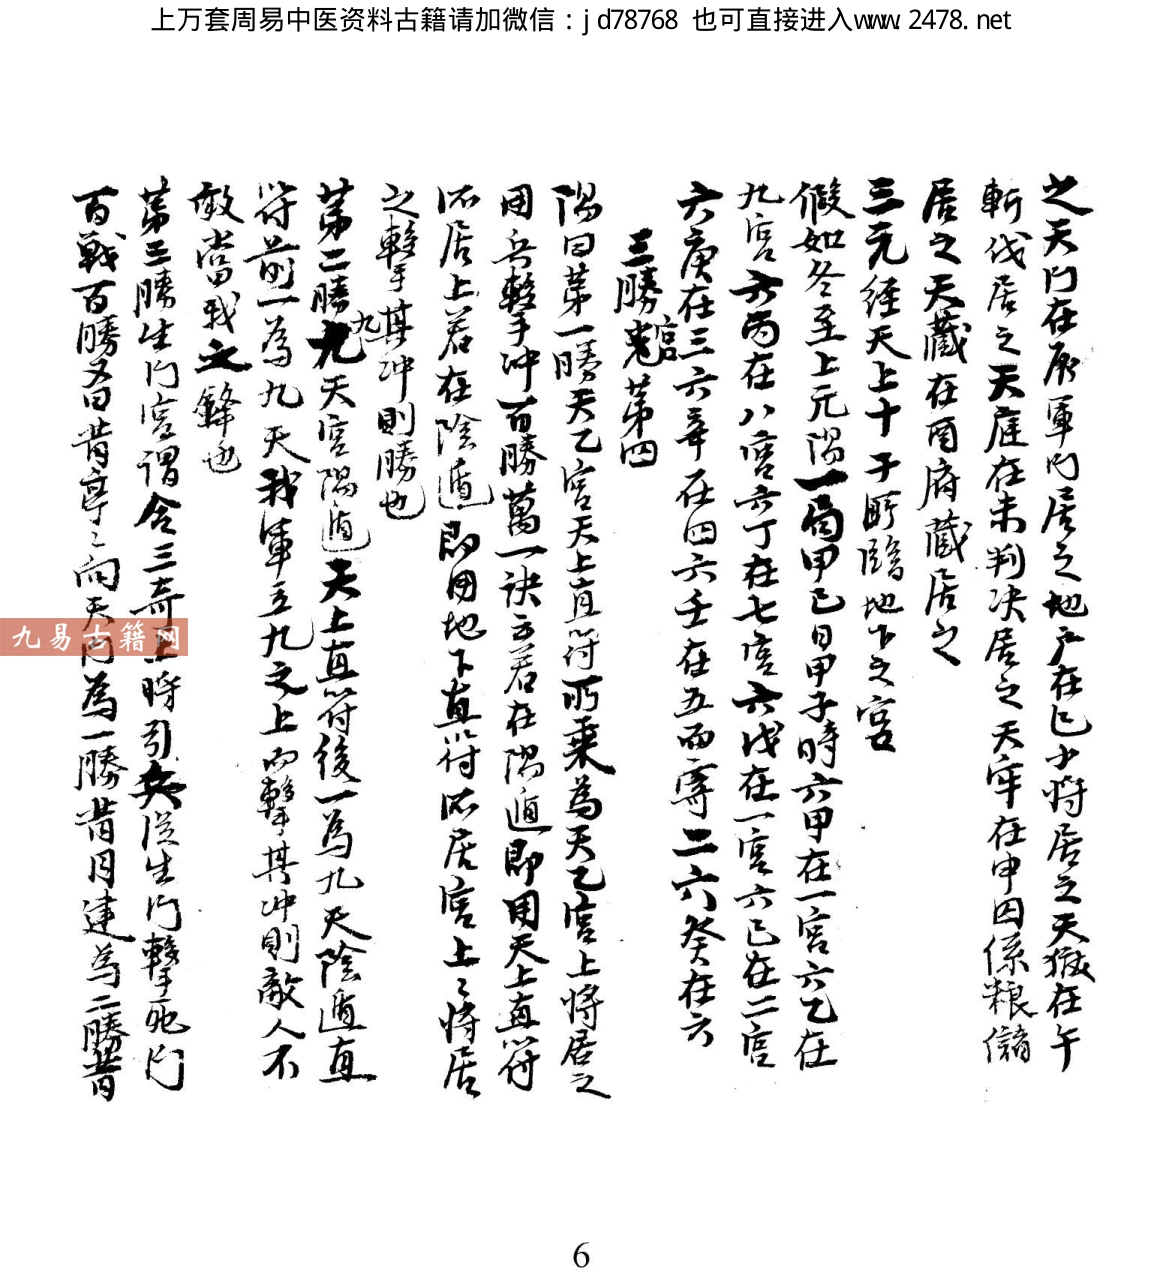 上万套周易中医资料古籍请加微信：jd78768 也可直接进入www.2478.net
之天门在辰軍门居之地户在巳少将居之天獄在午
斬伐居之天庭在未判决居之天牢在申囚係粮儲
居之天藏在酉府藏居之
三元經天上十干所臨地下之宫
假如冬至上元陽一局甲己日甲子時六甲在一宫六乙在
九宫六丙在八宫六丁在七宫六戊在一宫六己在二宫
六庚在三六辛在四六壬在五而寄二六癸在六
三勝宫第四
陽曰第一勝天乙宫天上直符所乘為天乙宫上將居之
用兵擊冲百勝萬一訣云若在陽遁即用天上直符
所居上若在陰遁即用地下直符所居宫上〻將居
之擊其冲則勝也
第二勝九天宫陽遁天上直符後一為九天陰遁直
符前一為九天我軍立九之上而擊其冲則敵人不
敢當我之鋒也
第三勝生门宫謂合三奇上將引兵從生门擊死门
百戰百勝又曰背亭〻向天门為一勝背月建為二勝背
九易古籍网
6